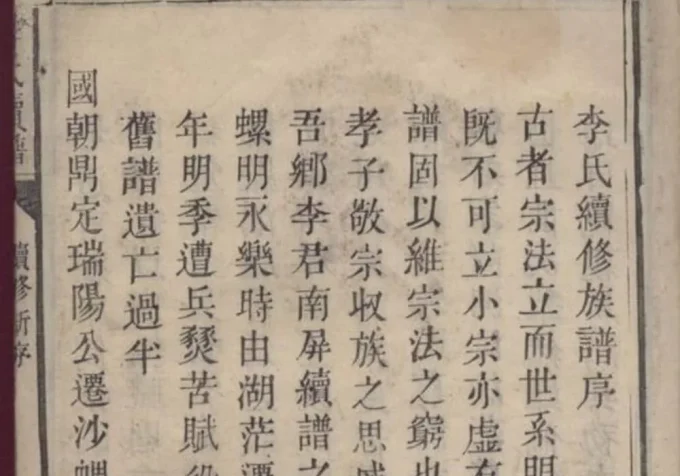 李氏續修族譜序
古者宗法立而世系明
既不可立小宗亦虛有
譜固以維宗法之窮也
孝子敬宗收族之思
吾鄉李君南屏續譜之
螺明永樂時由湖茫遷
年明季遭兵燹苦賦役
舊譜遺亡過半
國朝鼎定瑞陽公遷沙螺
氏續譜
續修新序